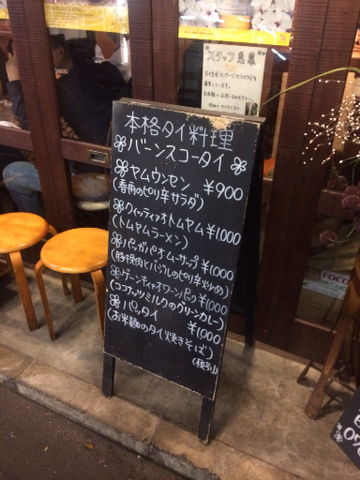 スタッフ急募
本格タイ料理
バーンスコータイ
ヤムウンセン ¥900
(春雨のピリ辛サラダ)
クィッティオトムヤム ¥1,000
(トムヤムラーメン)
パッガパオムーサップ ¥1,000
(豚挽肉とバジルのピリ辛炒め)
ゲーンキィオワーンパック ¥1,000
(ココナッツミルクのグリーンカレー)
パッタイ ¥1,000
(お米麺のタイ焼きそば)
(税込)